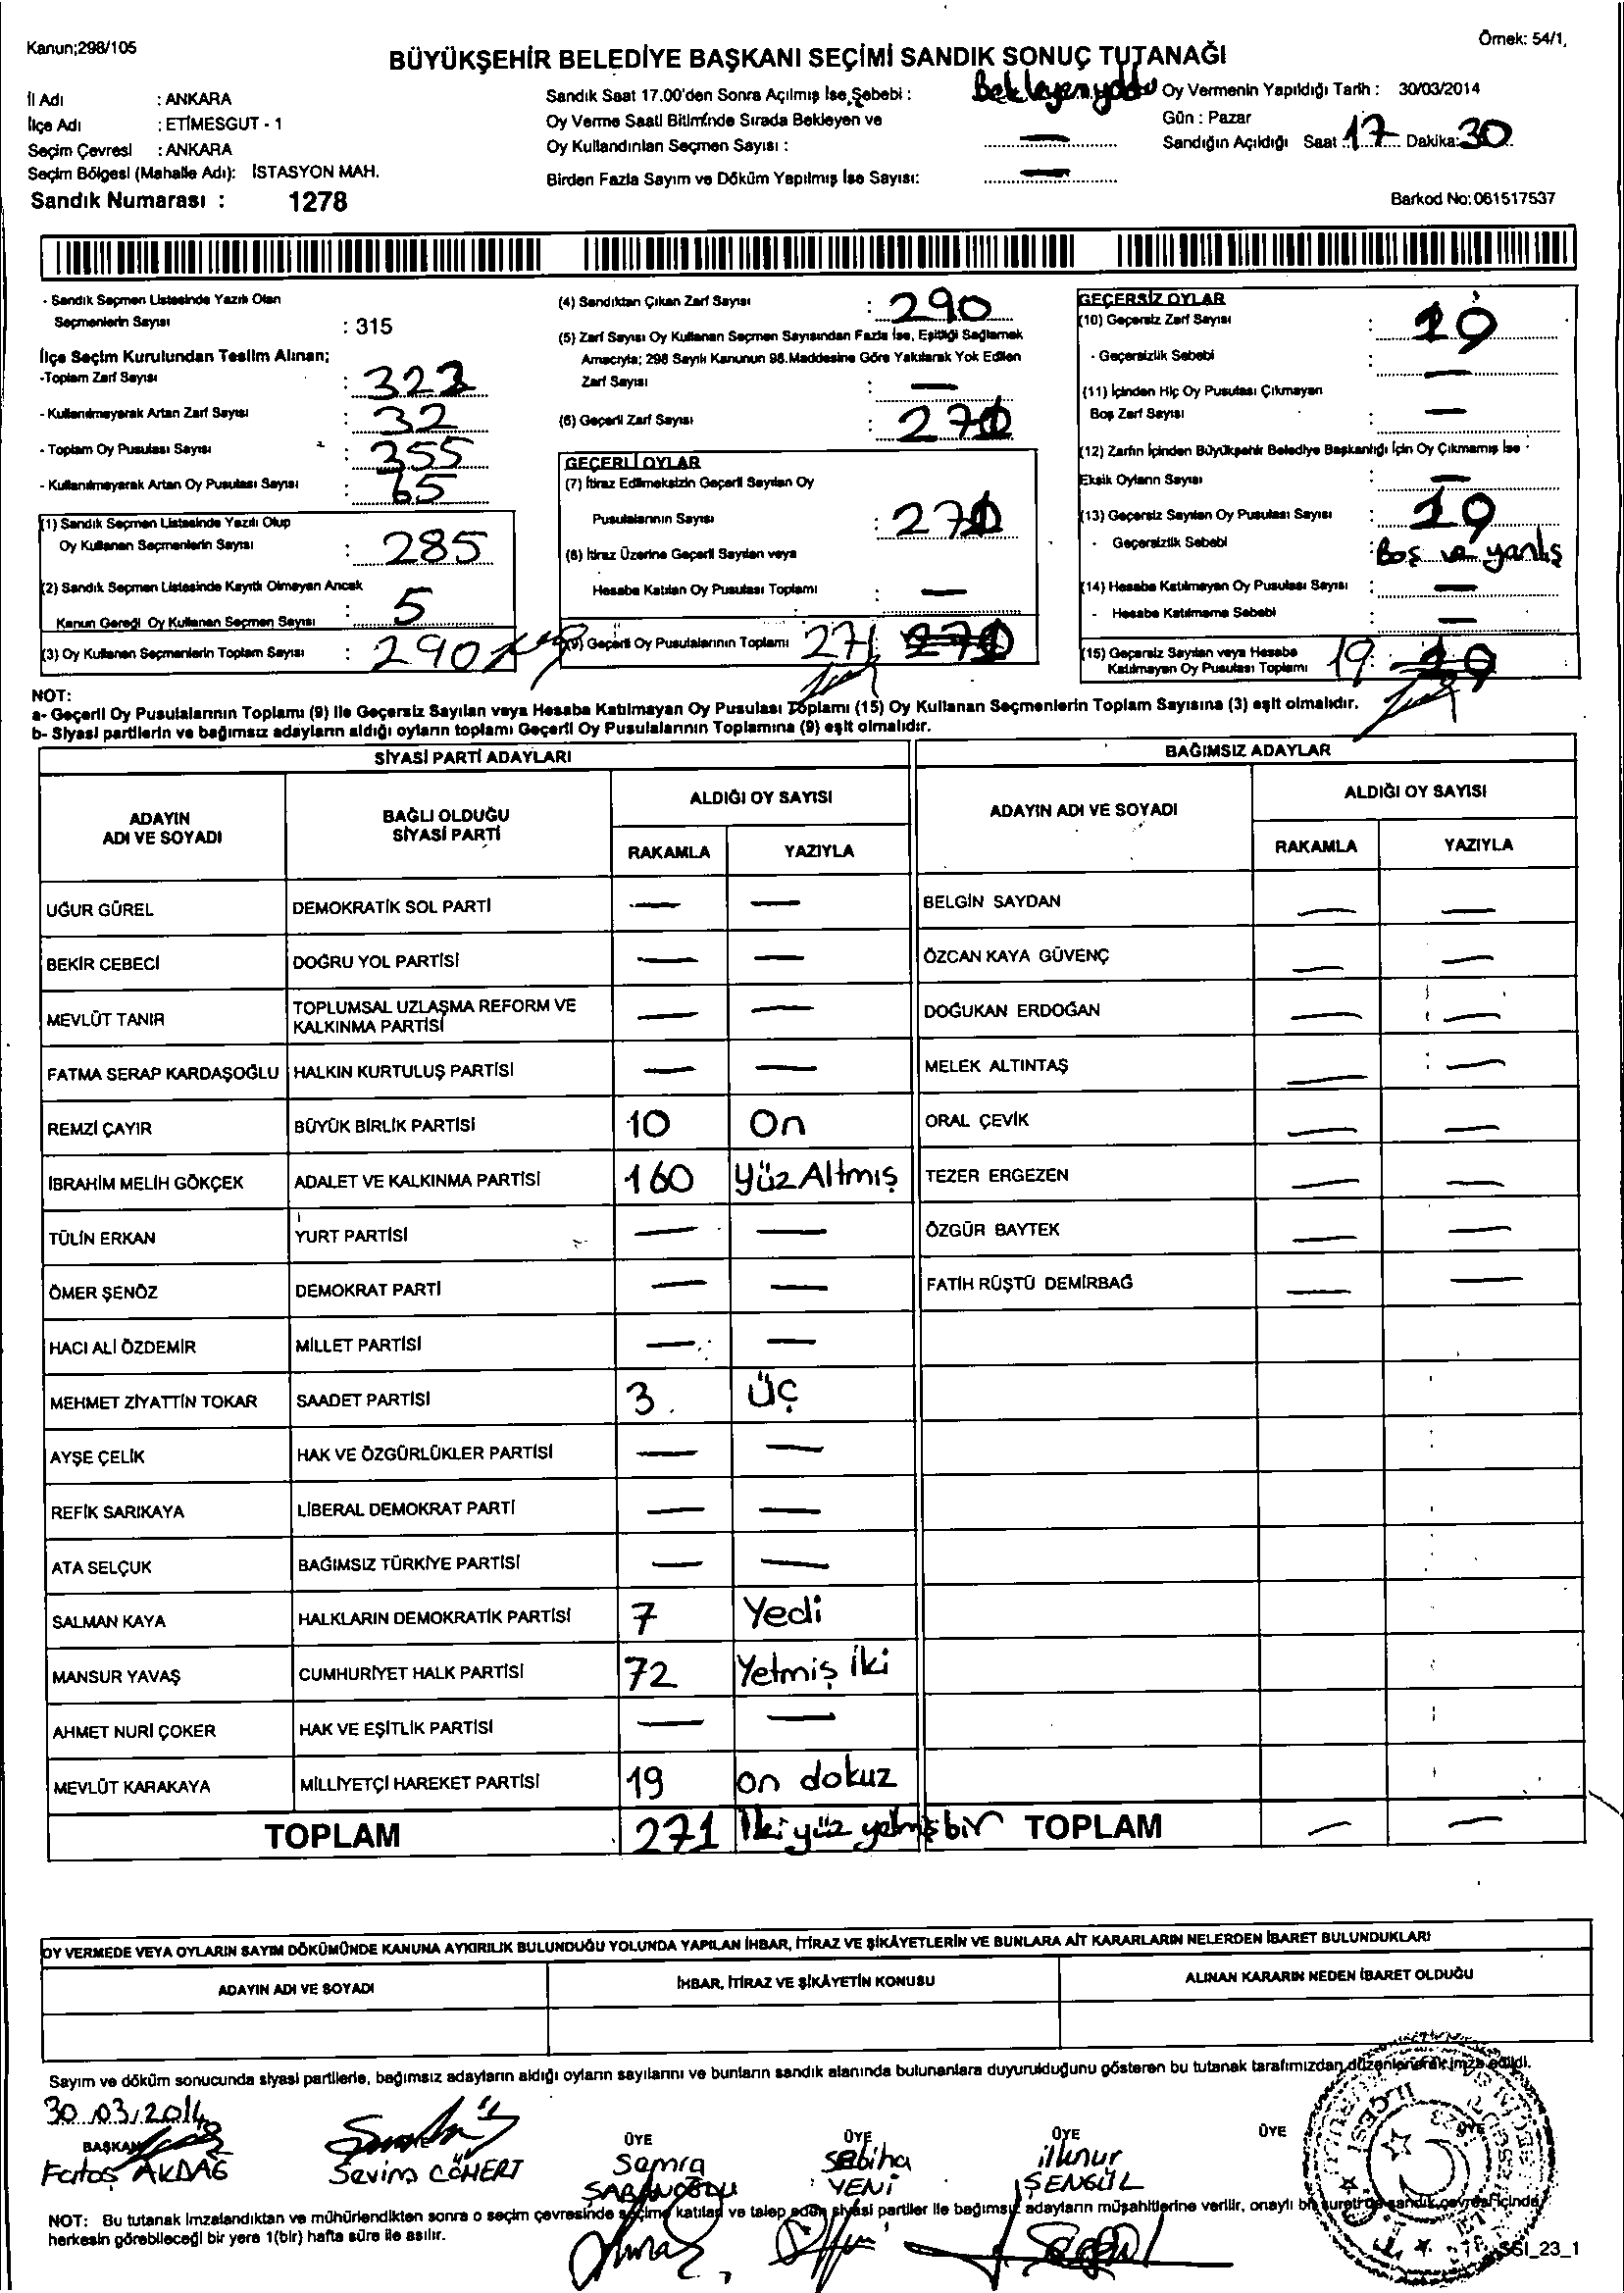 Kanun;298/105
Örnek: 54/1,
BÜYÜKŞEHİR BELEDİYE BAŞKANI SEÇİMİ SANDIK SONUÇ TUTANAĞI
İl Adı : ANKARA
İlçe Adı : ETİMESGUT - 1
Seçim Çevresi : ANKARA
Seçim Bölgesi (Mahalle Adı): İSTASYON MAH.
Sandık Numarası : 1278
Sandık Saat 17.00'den Sonra Açılmış İse Sebebi : Bekleyen yoktu
Oy Verme Saati Bitiminde Sırada Bekleyen ve
Oy Kullandırılan Seçmen Sayısı : —
Birden Fazla Sayım ve Döküm Yapılmış İse Sayısı: —
Oy Vermenin Yapıldığı Tarih : 30/03/2014
Gün : Pazar
Sandığın Açıldığı Saat : 17 Dakika: 30
Barkod No: 061517537
- Sandık Seçmen Listesinde Yazılı Olan
Seçmenlerin Sayısı : 315
İlçe Seçim Kurulundan Teslim Alınan;
-Toplam Zarf Sayısı : 322
- Kullanılmayarak Artan Zarf Sayısı : 32
- Toplam Oy Pusulası Sayısı : 355
- Kullanılmayarak Artan Oy Pusulası Sayısı : 65
(1) Sandık Seçmen Listesinde Yazılı Olup
Oy Kullanan Seçmenlerin Sayısı : 285
(2) Sandık Seçmen Listesinde Kayıtlı Olmayan Ancak
Kanun Gereği Oy Kullanan Seçmen Sayısı : 5
(3) Oy Kullanan Seçmenlerin Toplam Sayısı : 290
(4) Sandıktan Çıkan Zarf Sayısı : 290
(5) Zarf Sayısı Oy Kullanan Seçmen Sayısından Fazla İse, Eşitliği Sağlamak
Amacıyla; 298 Sayılı Kanunun 98.Maddesine Göre Yakılarak Yok Edilen
Zarf Sayısı : —
(6) Geçerli Zarf Sayısı : 271
GEÇERLİ OYLAR
(7) İtiraz Edilmeksizin Geçerli Sayılan Oy
Pusulalarının Sayısı : 271
(8) İtiraz Üzerine Geçerli Sayılan veya
Hesaba Katılan Oy Pusulası Toplamı : —
(9) Geçerli Oy Pusulalarının Toplamı 271 271
GEÇERSİZ OYLAR
(10) Geçersiz Zarf Sayısı : 19
- Geçersizlik Sebebi : —
(11) İçinden Hiç Oy Pusulası Çıkmayan
Boş Zarf Sayısı : —
(12) Zarfın İçinden Büyükşehir Belediye Başkanlığı İçin Oy Çıkmamış İse
Eksik Oyların Sayısı : —
(13) Geçersiz Sayılan Oy Pusulası Sayısı : 19
- Geçersizlik Sebebi : Boş ve yanlış
(14) Hesaba Katılmayan Oy Pusulası Sayısı : —
- Hesaba Katılmama Sebebi : —
(15) Geçersiz Sayılan veya Hesaba
Katılmayan Oy Pusulası Toplamı 19 : 19
NOT:
a- Geçerli Oy Pusulalarının Toplamı (9) ile Geçersiz Sayılan veya Hesaba Katılmayan Oy Pusulası Toplamı (15) Oy Kullanan Seçmenlerin Toplam Sayısına (3) eşit olmalıdır.
b- Siyasi partilerin ve bağımsız adayların aldığı oyların toplamı Geçerli Oy Pusulalarının Toplamına (9) eşit olmalıdır.
SİYASİ PARTİ ADAYLARI
ADAYIN
ADI VE SOYADI
BAĞLI OLDUĞU
SİYASİ PARTİ
ALDIĞI OY SAYISI
RAKAMLA YAZIYLA
UĞUR GÜREL DEMOKRATİK SOL PARTİ — —
BEKİR CEBECİ DOĞRU YOL PARTİSİ — —
MEVLÜT TANIR TOPLUMSAL UZLAŞMA REFORM VE
KALKINMA PARTİSİ — —
FATMA SERAP KARDAŞOĞLU HALKIN KURTULUŞ PARTİSİ — —
REMZİ ÇAYIR BÜYÜK BİRLİK PARTİSİ 10 On
İBRAHİM MELİH GÖKÇEK ADALET VE KALKINMA PARTİSİ 160 Yüz Altmış
TÜLİN ERKAN YURT PARTİSİ — —
ÖMER ŞENÖZ DEMOKRAT PARTİ — —
HACI ALİ ÖZDEMİR MİLLET PARTİSİ — —
MEHMET ZİYATTİN TOKAR SAADET PARTİSİ 3 Üç
AYŞE ÇELİK HAK VE ÖZGÜRLÜKLER PARTİSİ — —
REFİK SARIKAYA LİBERAL DEMOKRAT PARTİ — —
ATA SELÇUK BAĞIMSIZ TÜRKİYE PARTİSİ — —
SALMAN KAYA HALKLARIN DEMOKRATİK PARTİSİ 7 Yedi
MANSUR YAVAŞ CUMHURİYET HALK PARTİSİ 72 Yetmiş İki
AHMET NURİ ÇOKER HAK VE EŞİTLİK PARTİSİ — —
MEVLÜT KARAKAYA MİLLİYETÇİ HAREKET PARTİSİ 19 on dokuz
TOPLAM 271 İki yüz yetmiş bir
BAĞIMSIZ ADAYLAR
ADAYIN ADI VE SOYADI
ALDIĞI OY SAYISI
RAKAMLA YAZIYLA
BELGİN SAYDAN — —
ÖZCAN KAYA GÜVENÇ — —
DOĞUKAN ERDOĞAN — —
MELEK ALTINTAŞ — —
ORAL ÇEVİK — —
TEZER ERGEZEN — —
ÖZGÜR BAYTEK — —
FATİH RÜŞTÜ DEMİRBAĞ — —
TOPLAM — —
OY VERMEDE VEYA OYLARIN SAYIM DÖKÜMÜNDE KANUNA AYKIRILIK BULUNDUĞU YOLUNDA YAPILAN İHBAR, İTİRAZ VE ŞİKÂYETLERİN VE BUNLARA AİT KARARLARIN NELERDEN İBARET BULUNDUKLARI
ADAYIN ADI VE SOYADI İHBAR, İTİRAZ VE ŞİKÂYETİN KONUSU ALINAN KARARIN NEDEN İBARET OLDUĞU
Sayım ve döküm sonucunda siyasi partilerle, bağımsız adayların aldığı oyların sayılarını ve bunların sandık alanında bulunanlara duyurulduğunu gösteren bu tutanak tarafımızdan düzenlenerek imza edildi.
30.03.2014
BAŞKAN ÜYE ÜYE ÜYE ÜYE
Fatoş AKDAĞ Sevim Semra Sabiha İlknur
YENİ ŞENGÜL
NOT: Bu tutanak imzalandıktan ve mühürlendikten sonra o seçim çevresinde seçime katılan ve talep eden siyasi partiler ile bağımsız adayların müşahitlerine verilir, onaylı bir sureti de sandık çevresi içinde
herkesin görebileceği bir yere 1(bir) hafta süre ile asılır.
SSI_23_1